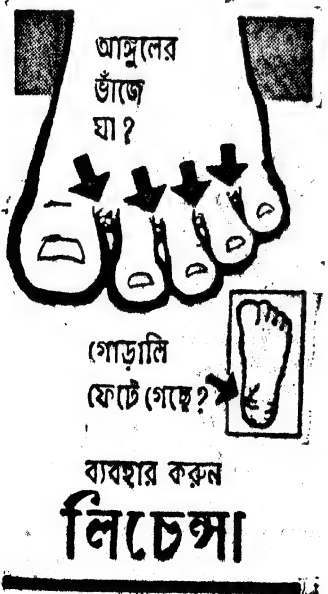 আঙ্গুলের
ভাঁজে
ঘা?
গোড়ালি
ফেটে গেছে?
ব্যবহার করুন
লিচেন্সা